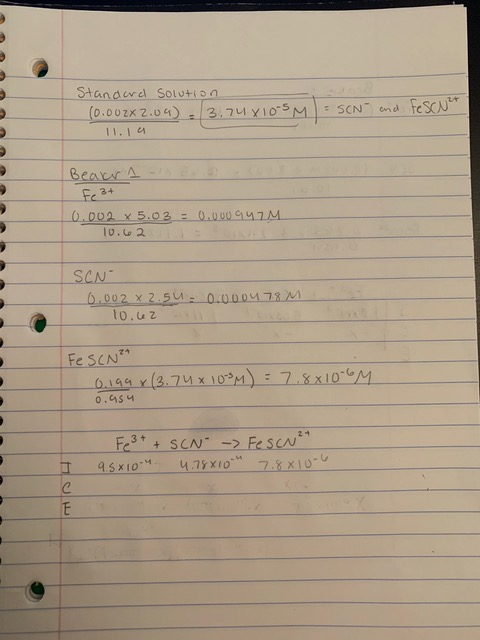 Standard Solution
(0.002 x 2.09) / 11.19 = 3.74 x 10⁻⁵ M = SCN⁻ and FeSCN²⁺
Beaker 1
Fe³⁺
0.002 x 5.03 / 10.62 = 0.000947M
SCN⁻
0.002 x 2.54 / 10.62 = 0.000478M
FeSCN²⁺
0.199 / 0.954 x (3.74 x 10⁻⁵M) = 7.8 x 10⁻⁶ M
Fe³⁺ + SCN⁻ -> FeSCN²⁺
I 9.5x10⁻⁴ 4.78x10⁻⁴ 7.8x10⁻⁶
C
E